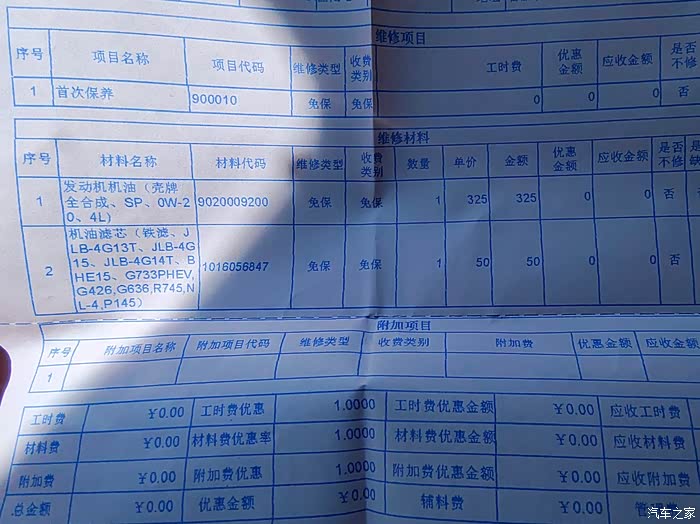 维修项目
序号 项目名称 项目代码 维修类型 收费类别 工时费 优惠金额 应收金额 是否不修
1 首次保养 900010 免保 免保 0 0 0 否
维修材料
序号 材料名称 材料代码 维修类型 收费类别 数量 单价 金额 优惠金额 应收金额 是否不修
1 发动机机油（壳牌全合成、SP、0W-20、4L） 9020009200 免保 免保 1 325 325 0 0 否
2 机油滤芯（铁滤、JLB-4G13T、JLB-4G15、JLB-4G14T、BHE15、G733PHEV,G426,G636,R745,NL-4,P145） 1016056847 免保 免保 1 50 50 0 0 否
附加项目
序号 附加项目名称 附加项目代码 维修类型 收费类别 附加费 优惠金额 应收金额
1
工时费 ¥0.00 工时费优惠 1.0000 工时费优惠金额 ¥0.00 应收工时费
材料费 ¥0.00 材料费优惠率 1.0000 材料费优惠金额 ¥0.00 应收材料费
附加费 ¥0.00 附加费优惠 1.0000 附加费优惠金额 ¥0.00 应收附加费
总金额 ¥0.00 优惠金额 ¥0.00 辅料费 ¥0.00
汽车之家